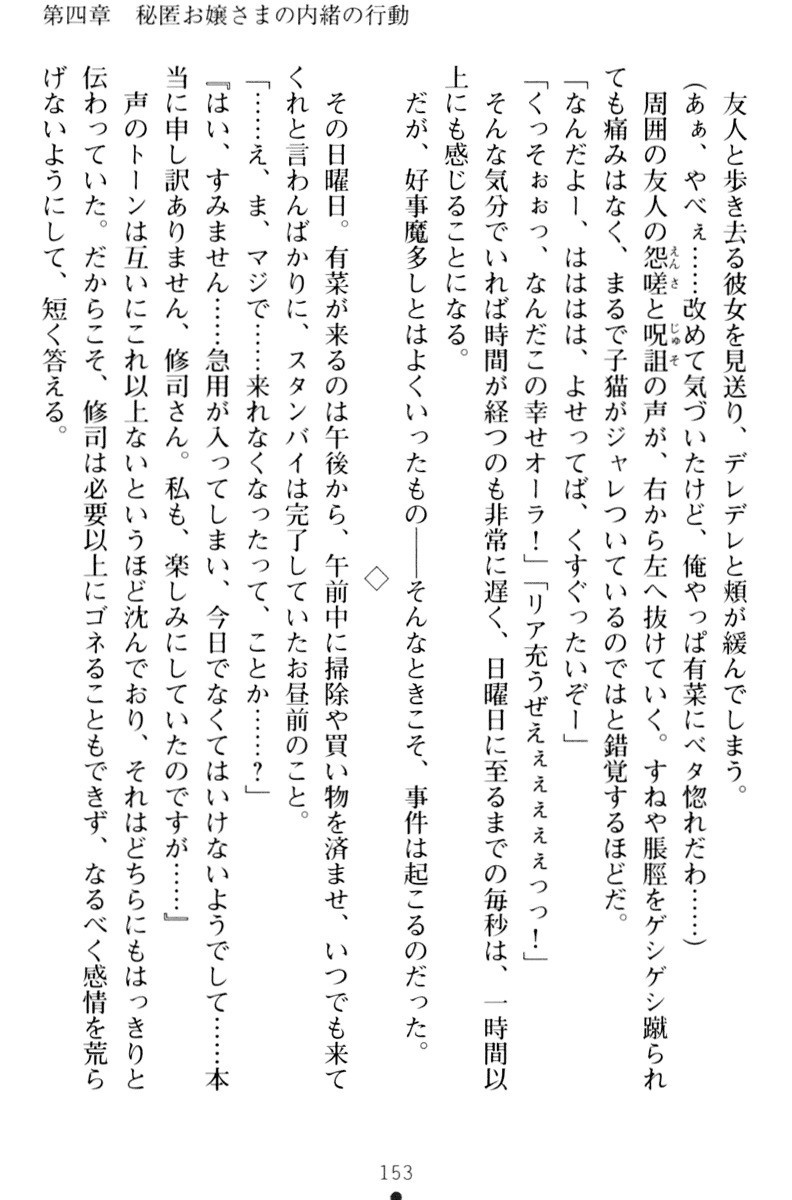 第四章　秘匿お嬢さまの内緒の行動
友人と歩き去る彼女を見送り、デレデレと頬が緩んでしまう。
(あぁ、やべぇ……改めて気づいたけど、俺やっぱ有菜にベタ惚れだわ……)
周囲の友人の怨嗟と呪詛の声が、右から左へ抜けていく。すねや脹脛をゲシゲシ蹴られ
ても痛みはなく、まるで子猫がジャレついているのではと錯覚するほどだ。
「なんだよー、はははは、よせってば、くすぐったいぞー」
「くっそぉぉっ、なんだこの幸せオーラ！」「リア充うぜえぇぇぇぇぇっっ！」
そんな気分でいれば時間が経つのも非常に遅く、日曜日に至るまでの毎秒は、一時間以
上にも感じることになる。
だが、好事魔多しとはよくいったもの――そんなときこそ、事件は起こるのだった。
◇
その日曜日。有菜が来るのは午後から、午前中に掃除や買い物を済ませ、いつでも来て
くれと言わんばかりに、スタンバイは完了していたお昼前のこと。
「……え、ま、マジで……来れなくなったって、ことか……？」
『はい、すみません……急用が入ってしまい、今日でなくてはいけないようでして……本
当に申し訳ありません、修司さん。私も、楽しみにしていたのですが……』
声のトーンは互いにこれ以上ないというほど沈んでおり、それはどちらにもはっきりと
伝わっていた。だからこそ、修司は必要以上にゴネることもできず、なるべく感情を荒ら
げないようにして、短く答える。
153